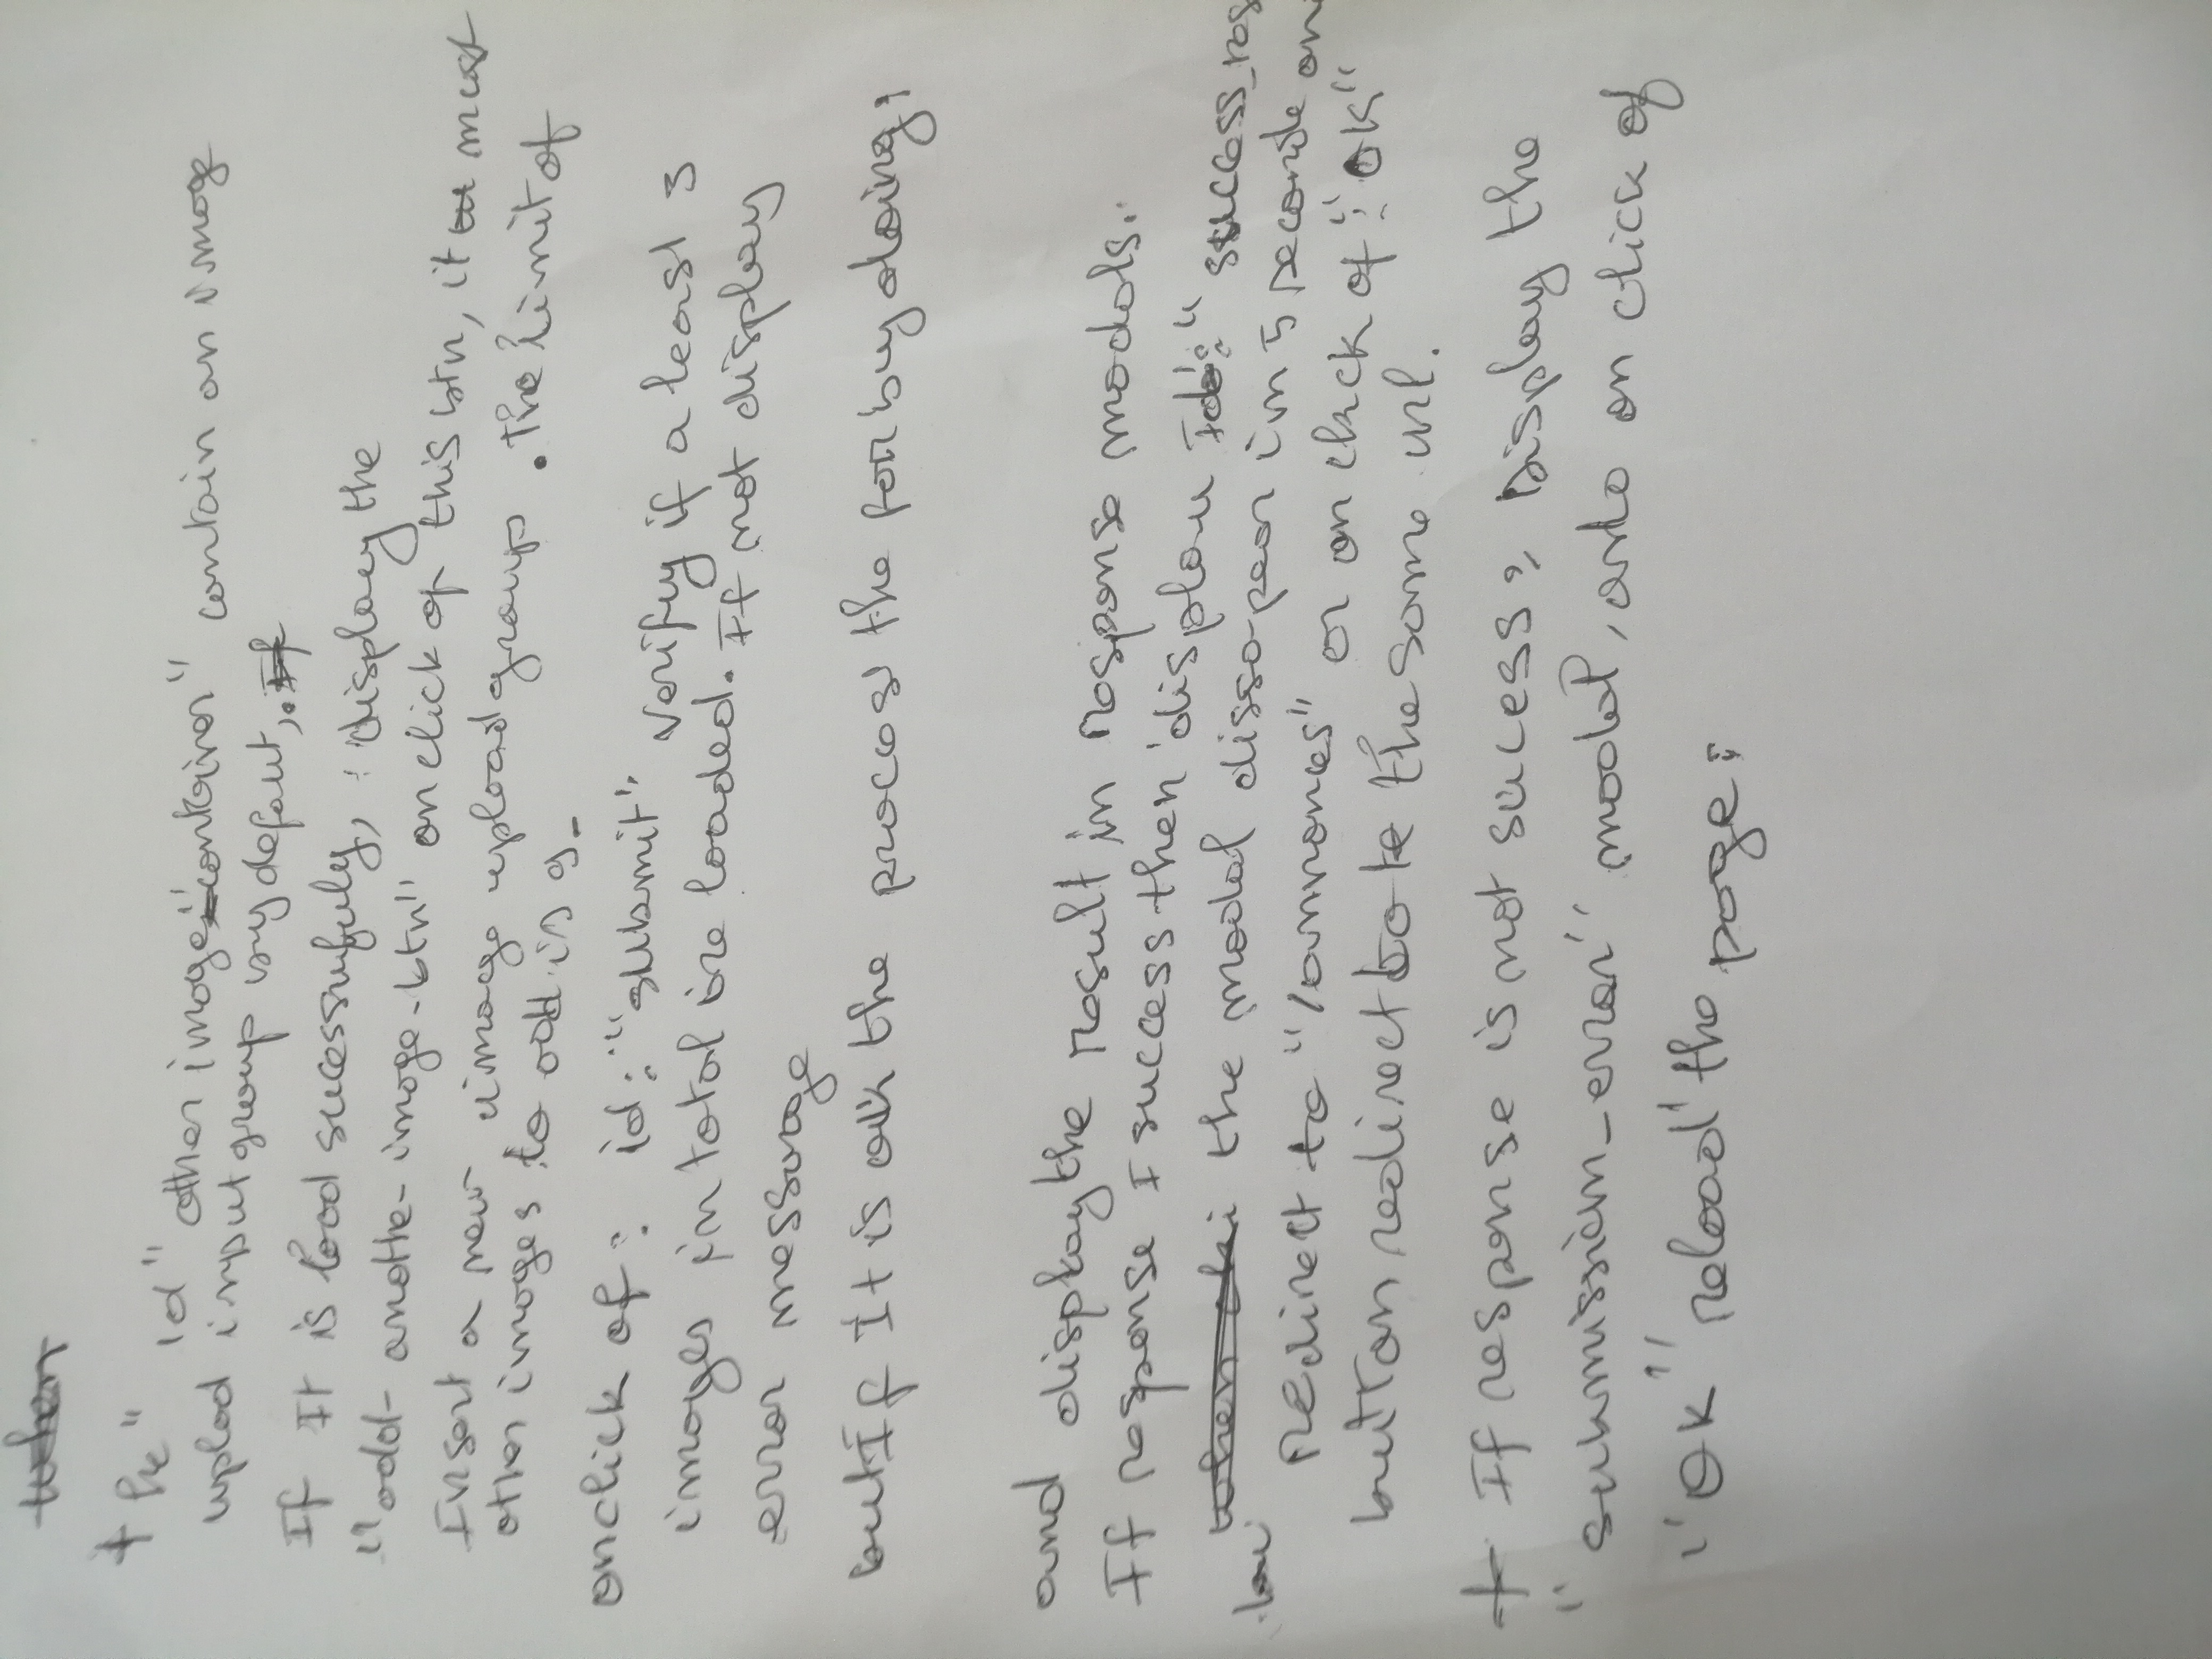 + the "id" other image container" contain an imag
uplod input group by default,
If It is load sucessfuly, display the
"add-anothe-image-btn" onclick of this btn, it must
Insert a new image upload group. The limit of
other images to add is 9-
onclick of: id: "submit" Verify if a least 3
images in total are loaded. If not display
error message
but If It is ok the process the foru by doing;
and display the result in response modals.
If response I success then display success_res
the modal dissapear in 5 seconde and
Redirect to "/annonces" or on click of: "ok"
button redirect to te the same url.
+ If response is not sucess, Display the
"submission_error" modal, and on click of
"OK" reload the page;